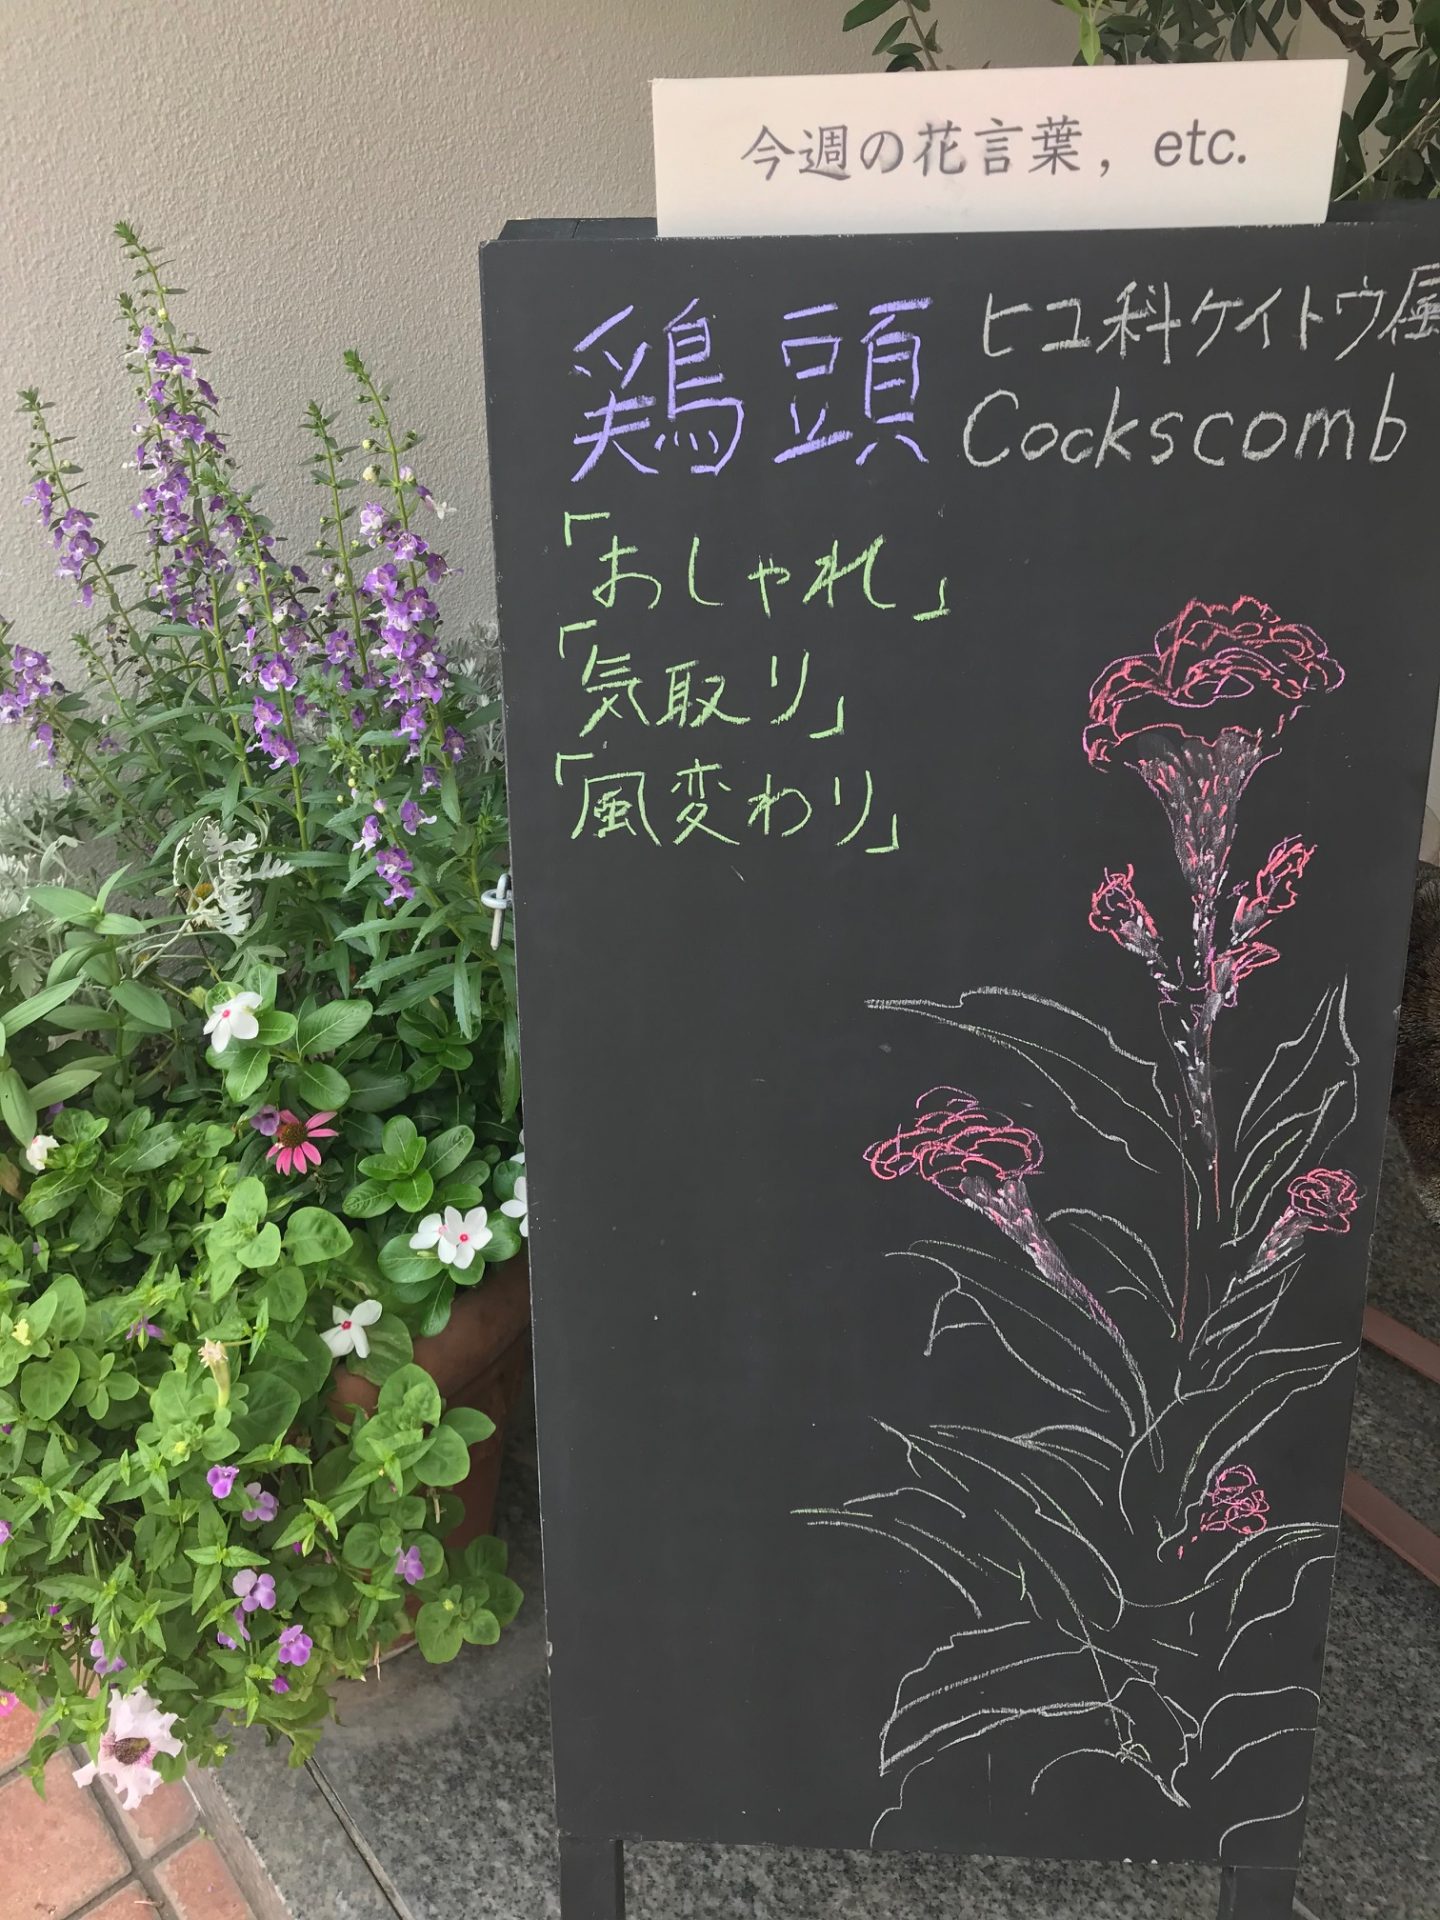 今週の花言葉，etc.
鶏頭 ヒユ科ケイトウ属
Cockscomb
「おしゃれ」
「気取り」
「風変わり」